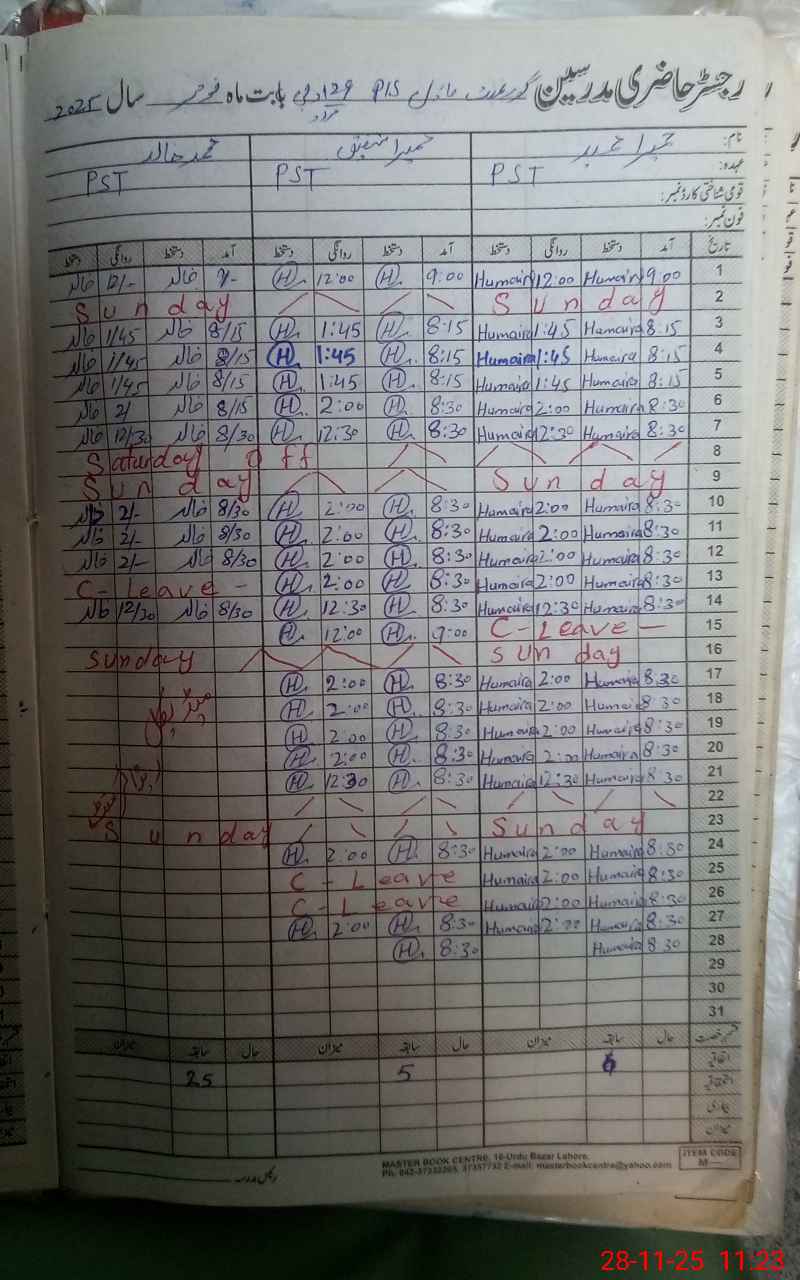 رجسٹر حاضری مدرسین گورنمنٹ ماڈل P/S 129 بابت ماہ نومبر سال 2025
نام: حمیرا حمید حمیرا شفیق محمد خالد
عہدہ: PST PST PST
قومی شناختی کارڈ نمبر:
فون نمبر:
تاریخ آمد دستخط روانگی دستخط آمد دستخط روانگی دستخط آمد دستخط روانگی دستخط
1 9:00 Humaira 12:00 Humaira 9:00 H. 12:00 H. خالد 12/- خالد
2 Sunday Sunday
3 8:15 Humaira 1:45 Humaira 8:15 H. 1:45 H. 8/15 خالد 1/45 خالد
4 8:15 Humaira 1:45 Humaira 8:15 H. 1:45 H. 8/15 خالد 1/45 خالد
5 8:15 Humaira 1:45 Humaira 8:15 H. 1:45 H. 8/15 خالد 1/45 خالد
6 8:30 Humaira 2:00 Humaira 8:30 H. 2:00 H. 8/15 خالد 2/ خالد
7 8:30 Humaira 12:30 Humaira 8:30 H. 12:30 H. 8/30 خالد 12/30 خالد
8 Saturday off
9 Sunday Sunday
10 8:30 Humaira 2:00 Humaira 8:30 H. 2:00 H. 8/30 خالد 2/- خالد
11 8:30 Humaira 2:00 Humaira 8:30 H. 2:00 H. 8/30 خالد 2/- خالد
12 8:30 Humaira 2:00 Humaira 8:30 H. 2:00 H. 8/30 خالد 2/- خالد
13 8:30 Humaira 2:00 Humaira 8:30 H. 2:00 H. C-Leave -
14 8:30 Humaira 12:30 Humaira 8:30 H. 12:30 H. 8/30 خالد 12/30 خالد
15 C-Leave - 9:00 H. 12:00 H.
16 Sunday Sunday
17 8:30 Humaira 2:00 Humaira 8:30 H. 2:00 H.
18 8:30 Humaira 2:00 Humaira 8:30 H. 2:00 H.
19 8:30 Humaira 2:00 Humaira 8:30 H. 2:00 H.
20 8:30 Humaira 2:00 Humaira 8:30 H. 2:00 H.
21 8:30 Humaira 12:30 Humaira 8:30 H. 12:30 H.
22
23 Sunday Sunday
24 8:30 Humaira 2:00 Humaira 8:30 H. 2:00 H.
25 8:30 Humaira 2:00 Humaira C-Leave
26 8:30 Humaira 2:00 Humaira C-Leave
27 8:30 Humaira 2:00 Humaira 8:30 H. 2:00 H.
28 8:30 Humaira 8:30 H.
29
30
31
قسم رخصت حال سابقہ میزان حال سابقہ میزان حال سابقہ میزان
اتفاقیہ 6 5 25
استحقاقیہ
بیماری
میزان
MASTER BOOK CENTRE, 16-Urdu Bazar Lahore.
Ph. 042-37332265, 37357732 E-mail: masterbookcentre@yahoo.com
ITEM CODE
M
28-11-25 11:23